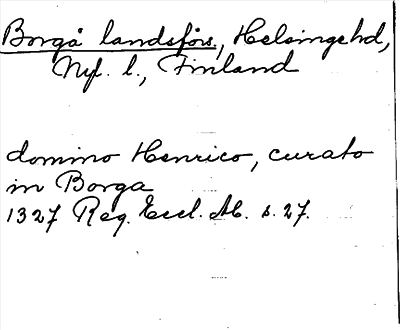 Borgå landsförs., Helsinge hd,
Nyl. l., Finland
domino Henrico, curato
in Borga
1327 Reg. Eccl. Ab. s. 27.